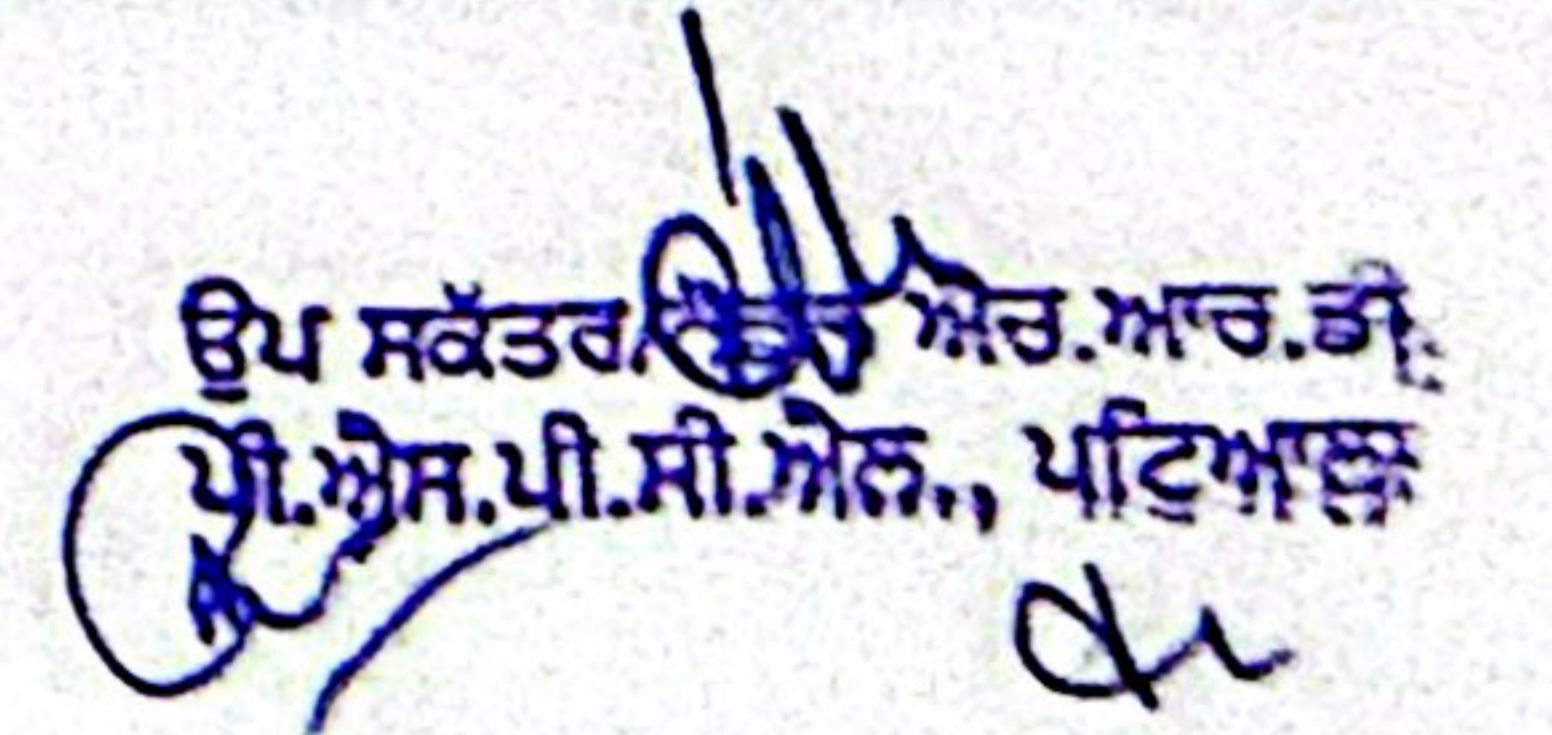 ਉਪ ਸਕੱਤਰ/ ਐਚ.ਆਰ.ਡੀ.
ਪੀ.ਐਸ.ਪੀ.ਸੀ.ਐਲ., ਪਟਿਆਲਾ